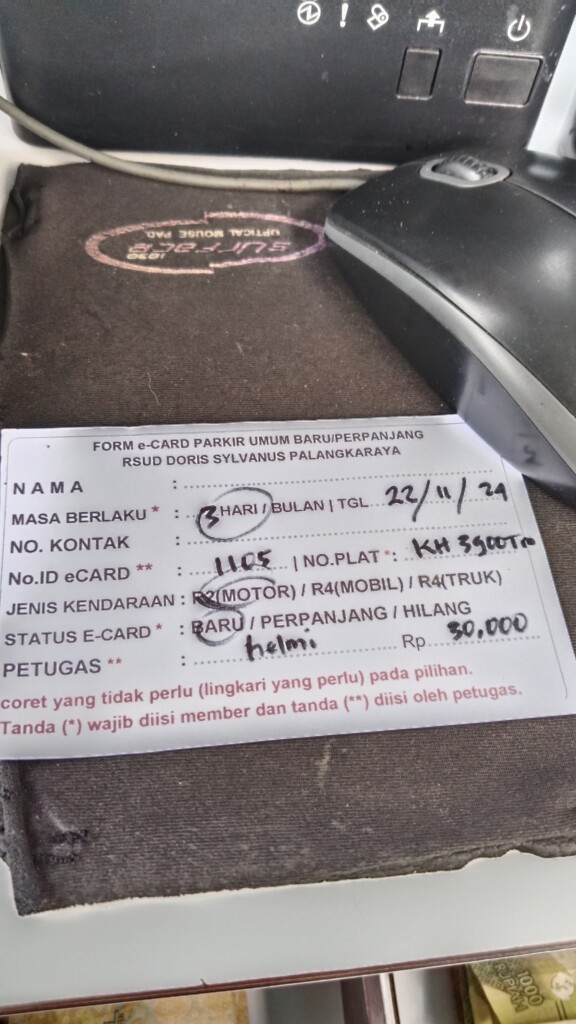 surface
1030
OPTICAL MOUSE PAD
FORM e-CARD PARKIR UMUM BARU/PERPANJANG
RSUD DORIS SYLVANUS PALANGKARAYA
N A M A :
MASA BERLAKU * : 3 HARI / BULAN | TGL 22/11/24
NO. KONTAK :
No.ID eCARD ** : 1105 | NO.PLAT *: KH
JENIS KENDARAAN : R2(MOTOR) / R4(MOBIL) / R4(TRUK)
STATUS E-CARD * : BARU / PERPANJANG / HILANG
PETUGAS ** : helmi Rp 30,000
coret yang tidak perlu (lingkari yang perlu) pada pilihan.
Tanda (*) wajib diisi member dan tanda (**) diisi oleh petugas.
1000
RUPIAH